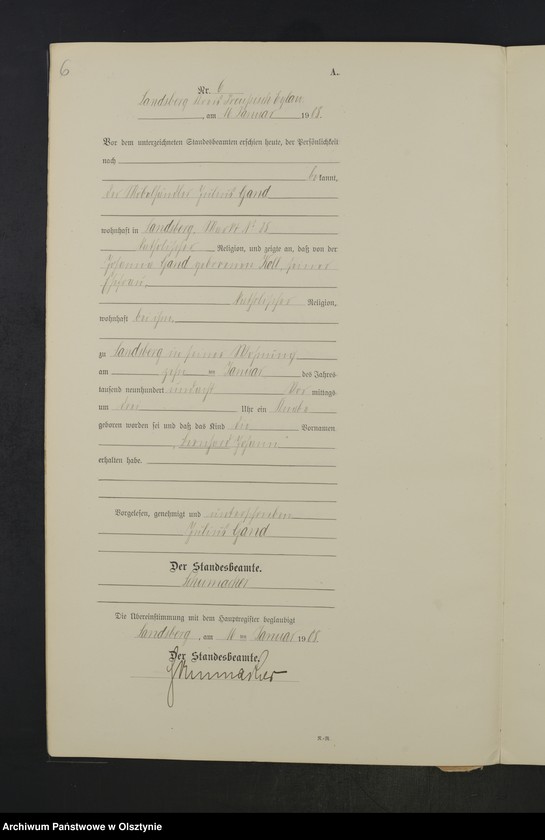 6
A.
Nr. 6
Landsberg Kreis Preußisch Eylau
, am 11 Januar 1908.
Vor dem unterzeichneten Standesbeamten erschien heute, der Persönlichkeit
nach
be kannt,
der Möbelhändler Julius Gand
wohnhaft in Landsberg, Markt Nr
katholischer Religion, und zeigte an, daß von der
Johanna Gand geborenen Koll, seiner
Ehefrau
katholischer Religion,
wohnhaft bei ihm
zu Landsberg in seiner Wohnung
am ten Januar des Jahres
tausend neunhundert und acht Vor mittags
um drei Uhr ein Knabe
geboren worden sei und daß das Kind die Vornamen
Johann
erhalten habe.
Vorgelesen, genehmigt und unterschrieben
Julius Gand
Der Standesbeamte.
Schumacher
Die Übereinstimmung mit dem Hauptregister beglaubigt
Landsberg, am 11 ten Januar 1908.
Der Standesbeamte.
Schumacher
Archiwum Państwowe w Olsztynie